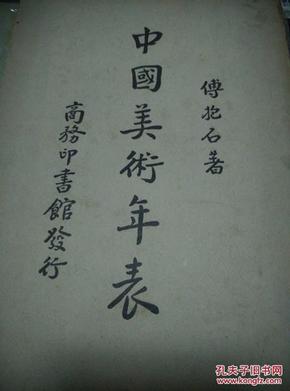 傅抱石著
中國美術年表
商務印書館發行
孔夫子旧书网